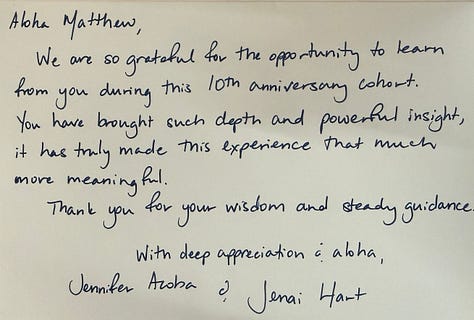 Aloha Matthew,
We are so grateful for the opportunity to learn
from you during this 10th anniversary cohort.
You have brought such depth and powerful insight,
it has truly made this experience that much
more meaningful.
Thank you for your wisdom and steady guidance.
With deep appreciation & aloha,
Jennifer Acoba & Jenai Hart